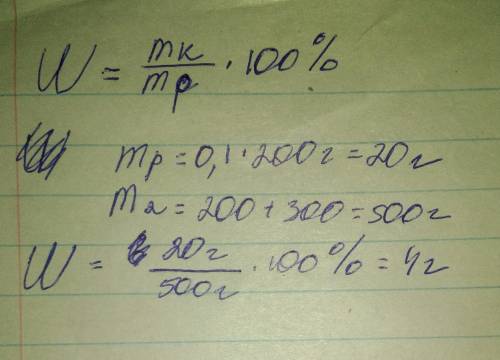 W = mк/mр · 100%
mр = 0,1 · 200г = 20г
m2 = 200 + 300 = 500г
W = 20г/500г · 100% = 4г